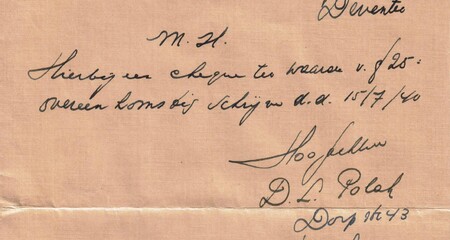 Deventer
M. H.
Hierbij een cheque ter waarde v. f 25:
overeenkomstig schrijven d.d. 15/7/40
D. L. Polak
Dorpstr 43